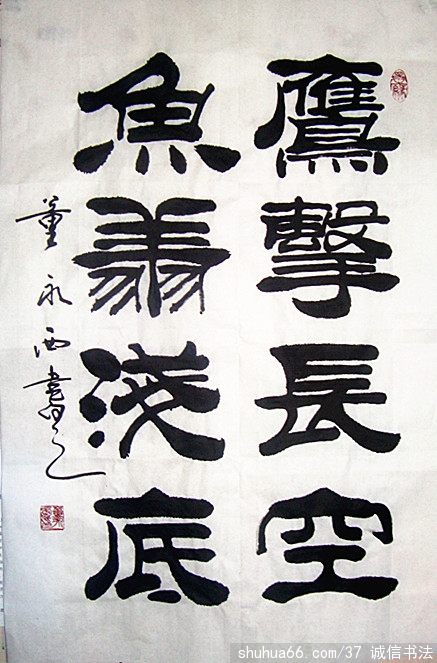 鷹擊長空
魚翔淺底
董永西書之
shuhua66.com/37 诚信书法